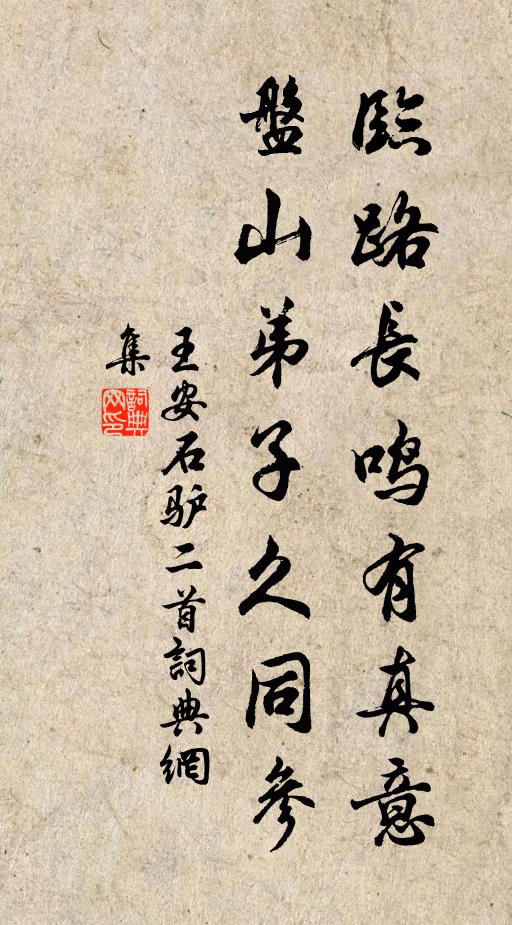 臨路長鳴有真意
盤山弟子久同參
王安石驴二首詞典網
集
詞典網印